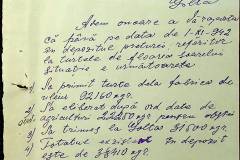 Plata
Avem onoare a vă raporta
că până pe data de 1-XI-942
în depozitul preturei, referitor
la turtele de floarea soarelui
situația e următoarea
1) Sa primit turte dela fabrica de
uleiu 92160 kgr.
2) Sa eliberat după ord date de
agricultori 22250 kgr pentru
3) Sa trimes la 31500 kgr.
4) Totalul existent în depozit
este de 38410 kgr.